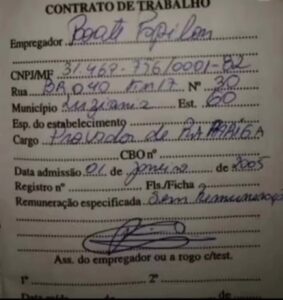 CONTRATO DE TRABALHO
Empregador Boate Papilon
CNPJ/MF 31469-776/0001-82
Rua BR 040 Km 17 Nº 30
Município Luziania Est. GO
Esp. do estabelecimento
Cargo Provador de
CBO nº
Data admissão 01 de janeiro de 2005
Registro nº Fls./Ficha
Remuneração especificada Sem Remuneração
Ass. do empregador ou a rogo c/test.
1º 2º